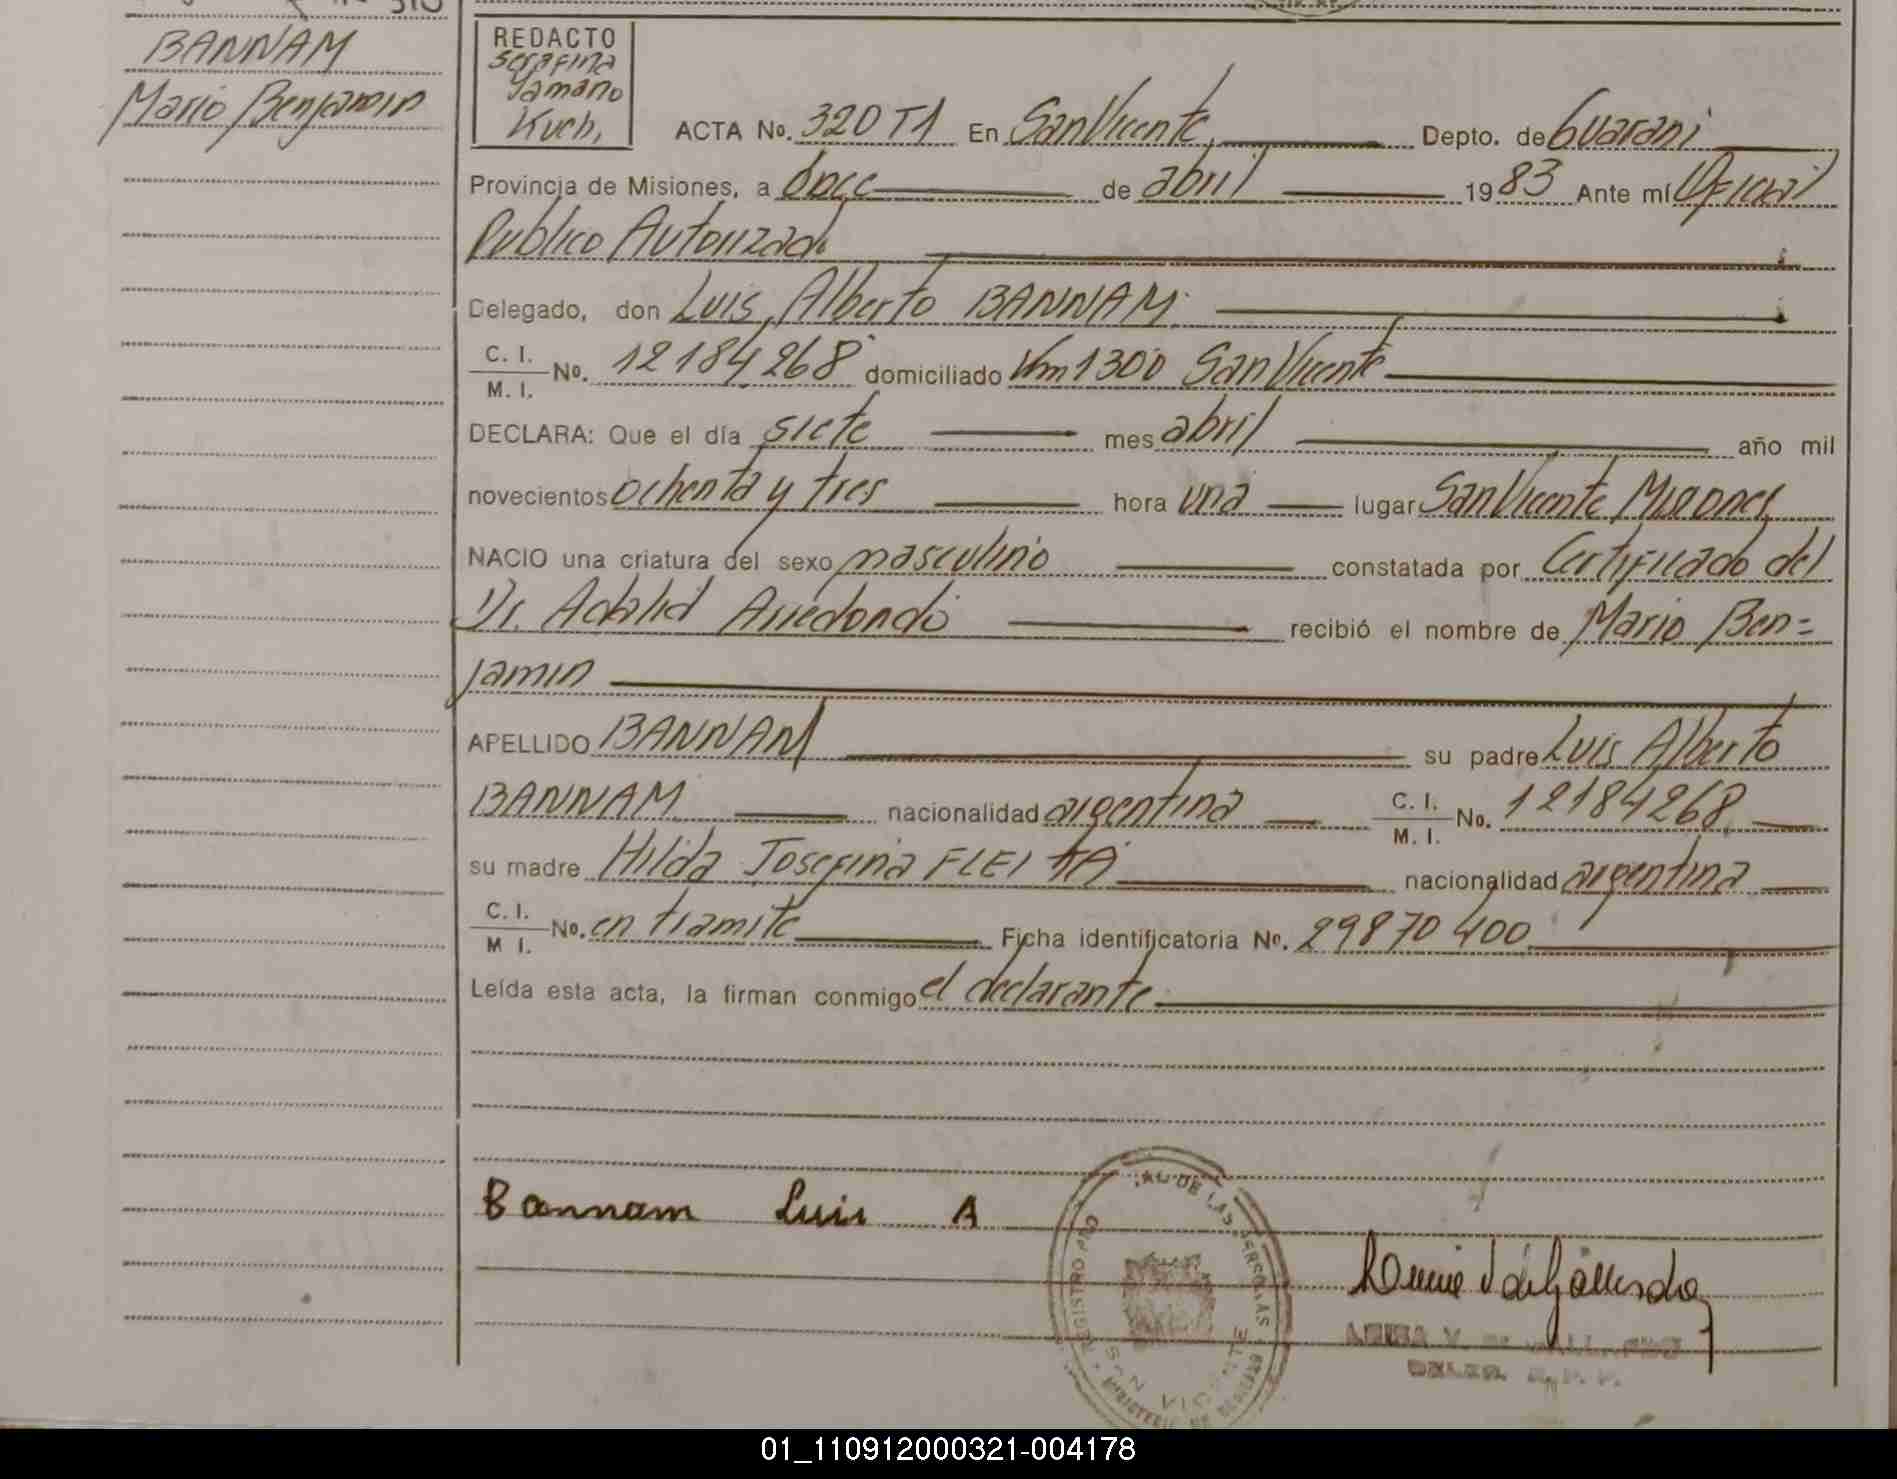 BANNAM
Mario Benjamin
REDACTO
Serafina
Yamano
Kuch,
ACTA No. 320 T1 En San Vicente, Depto. de Guarani
Provincia de Misiones, a doce de abril 1983 Ante mí Oficial
Publico Autorizado
Delegado, don Luis Alberto BANNAM.
C. I.
M. I. No. 12184268 domiciliado Km 1300 San Vicente
DECLARA: Que el día siete mes abril año mil
novecientos ochenta y tres hora una lugar San Vicente Misiones
NACIO una criatura del sexo masculino constatada por Certificado del
Dr. Adalid Arredondo recibió el nombre de Mario Ben=
jamin
APELLIDO BANNAM su padre Luis Alberto
BANNAM nacionalidad argentina C. I.
M. I. No. 12184268
su madre Hilda Josefina FLEITA nacionalidad argentina
C. I.
M I. No. en tramite Ficha identificatoria No. 29870400
Leída esta acta, la firman conmigo el declarante
Bannam Luis A
REGISTRO PRO DE LAS PERSONAS
SAN VICENTE
MINISTERIO DE GOBIERNO
01_110912000321-004178